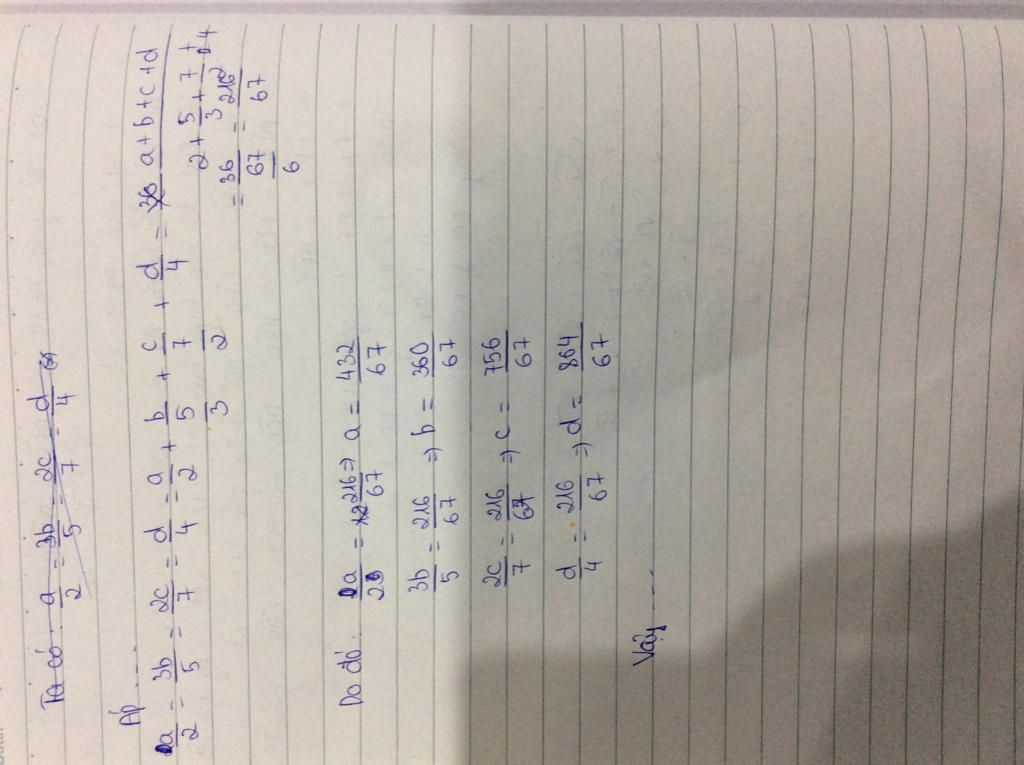 Ta có: a/2 = 3b/5 = 2c/7 = d/4
Áp ....
a/2 = 3b/5 = 2c/7 = d/4 = a/2 + b/(5/3) + c/(7/2) + d/4 = (a+b+c+d)/(2 + 5/3 + 7/2 + 4)
= 36/(67/6) = 216/67
Do đó: a/2 = 216/67 => a = 432/67
3b/5 = 216/67 => b = 360/67
2c/7 = 216/67 => c = 756/67
d/4 = 216/67 => d = 864/67
Vậy ....